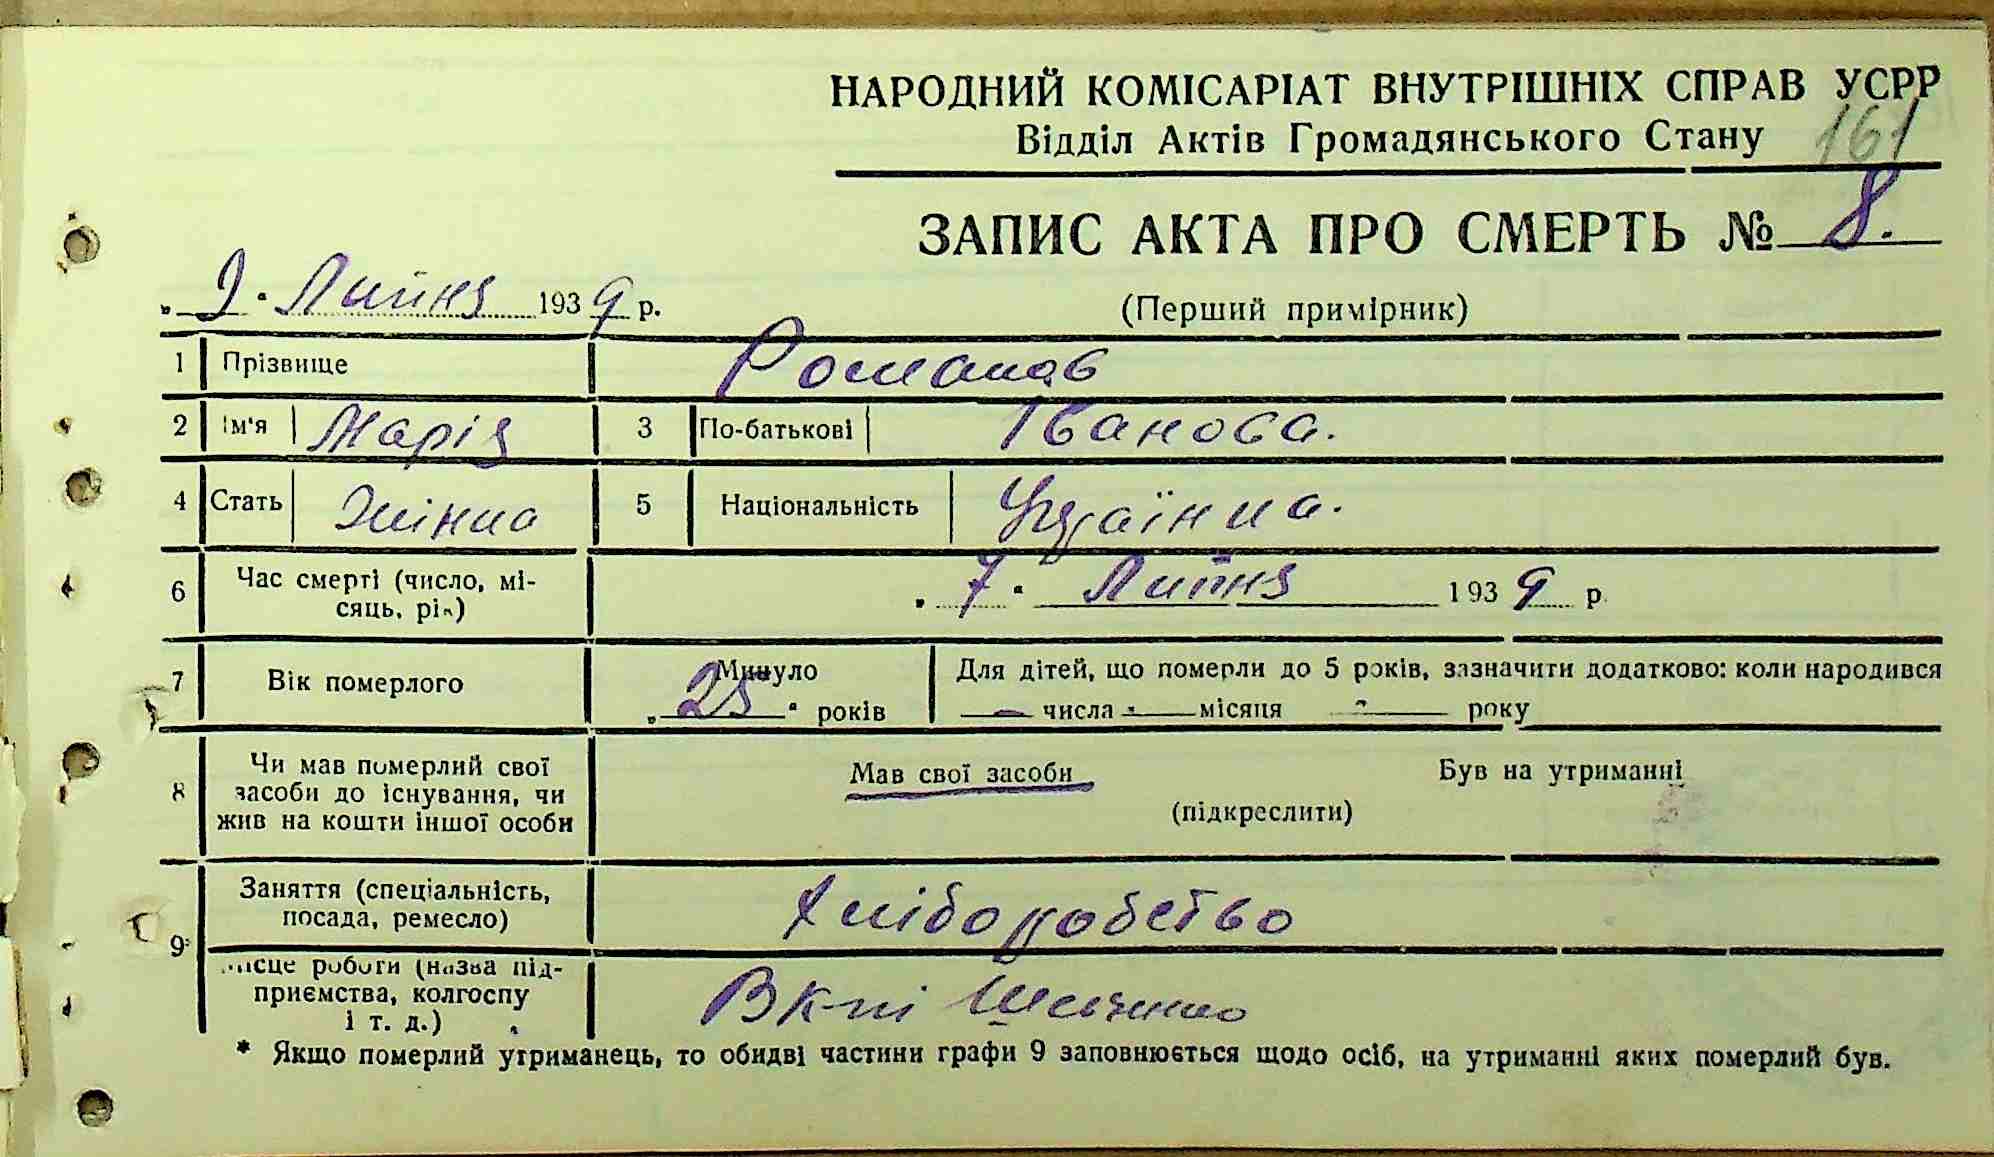 НАРОДНИЙ КОМІСАРІАТ ВНУТРІШНІХ СПРАВ УСРР
Відділ Актів Громадянського Стану
161
ЗАПИС АКТА ПРО СМЕРТЬ № 8.
„ 9 " Липня 1939 р.
(Перший примірник)
1 Прізвище
2 Ім'я Марія 3 По-батькові Іванова.
4 Стать Жінка 5 Національність Українка.
6 Час смерті (число, мі-
сяць, рік) „ 7 " Липня 1939 р.
7 Вік померлого Минуло „ 25 " років
Для дітей, що померли до 5 років, зазначити додатково: коли народився
— числа — місяця — року
8 Чи мав померлий свої
засоби до існування, чи
жив на кошти іншої особи
Мав свої засоби Був на утриманні
(підкреслити)
9* Заняття (спеціальність,
посада, ремесло) Хліборобство
Місце роботи (назва під-
приємства, колгоспу
і т. д.) В к-пі Шевченко
* Якщо померлий утриманець, то обидві частини графи 9 заповнюється щодо осіб, на утриманні яких померлий був.